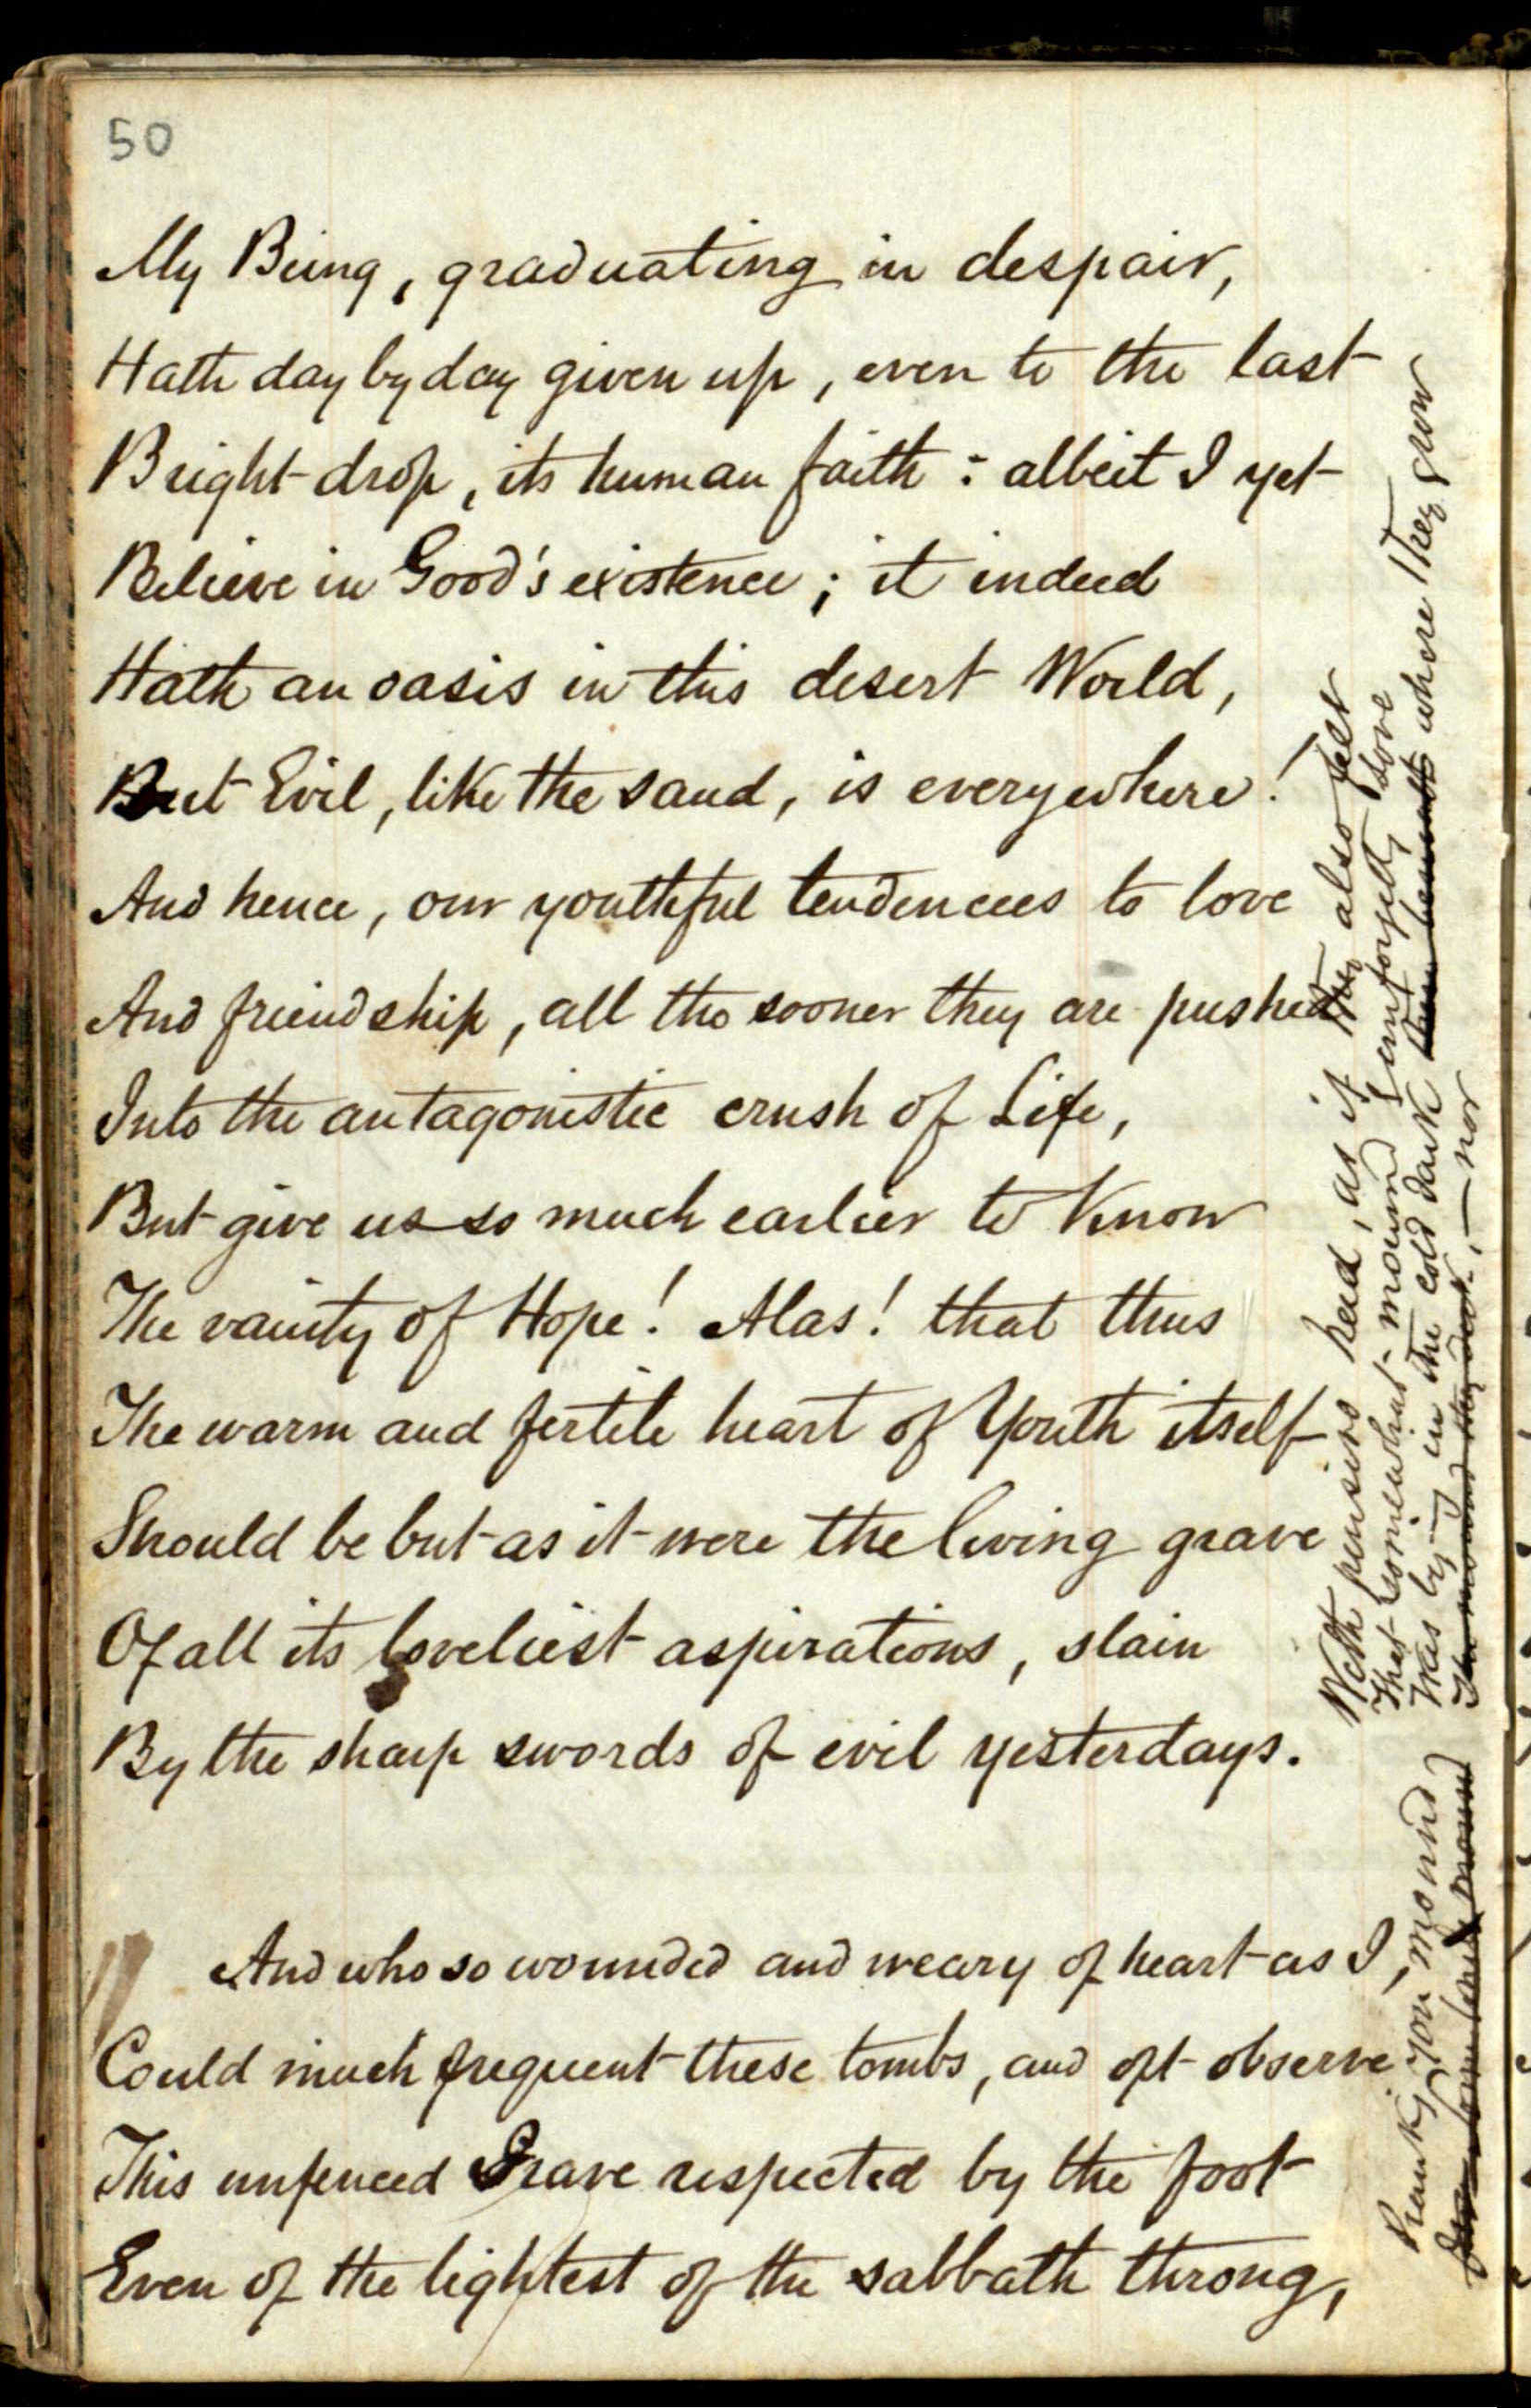 50
My Being, graduating in despair,
Hath day by day given up, even to the last
Bright drop, its human faith: albeit I yet
Believe in Good's existence; it indeed
Hath an oasis in this desert World,
But Evil, like the sand, is everywhere!
And hence, our youthful tendencies to love
And friendship, all the sooner they are pushed
Into the antagonistic crush of Life,
But give us so much earlier to know
The vanity of Hope! Alas! that thus
The warm and fertile heart of Youth itself
Should be but as it were the living grave
Of all its loveliest aspirations, slain
By the sharp swords of evil yesterdays.
And who so wounded and weary of heart as I,
Could much frequent these tombs, and oft observe
This unfenced Grave respected by the foot
Even of the lightest of the sabbath throng,
With pensive head, as if they also felt
That somewhat mound emt forgetty love
Was by in the cold dark where they grow
nor
yon mound